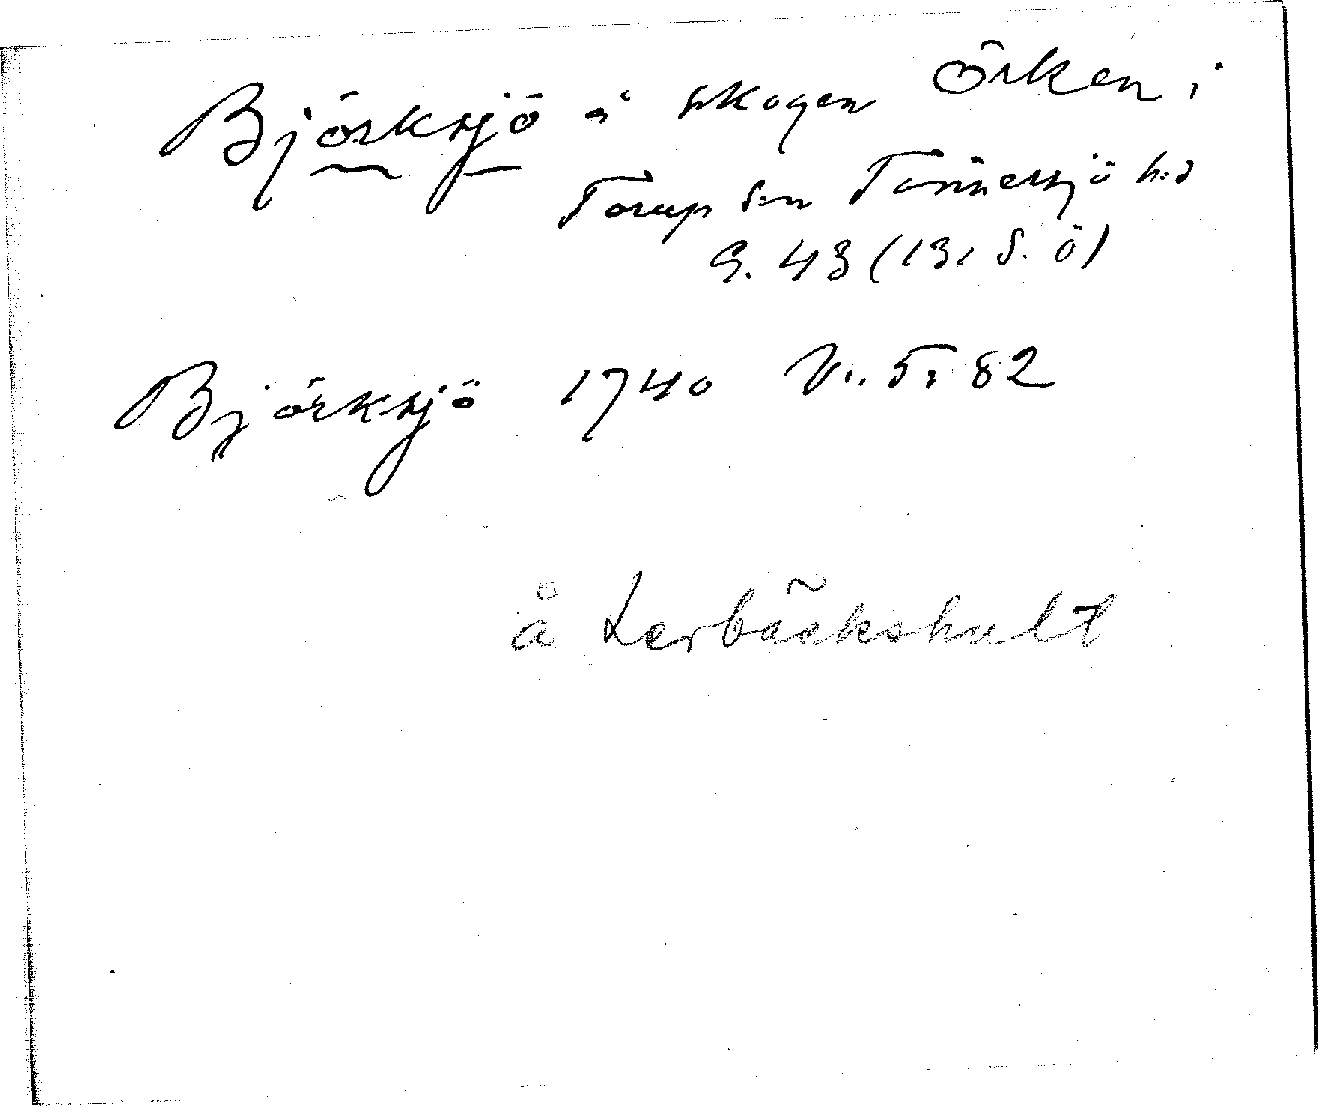 Björksjö å skogen Örken i
Torup s:n Tönnersjö h:d
G. 43 (131 S. ö)
Björksjö 1740 V:. 5: 82
å Lerbäckshult